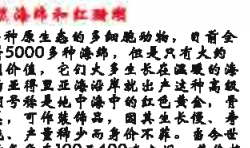 海绵和红珊瑚
种原生态的多细胞动物，目前全
5000多种海绵，但是只有大的
价值，它们大多生长在温暖的海
亚得里亚海沿岸就出产这种高级
号称是地中海中的红色黄金，骨
，可作装饰品，因其生长慢、寿
、产量稀少而身价不菲。当今世
100